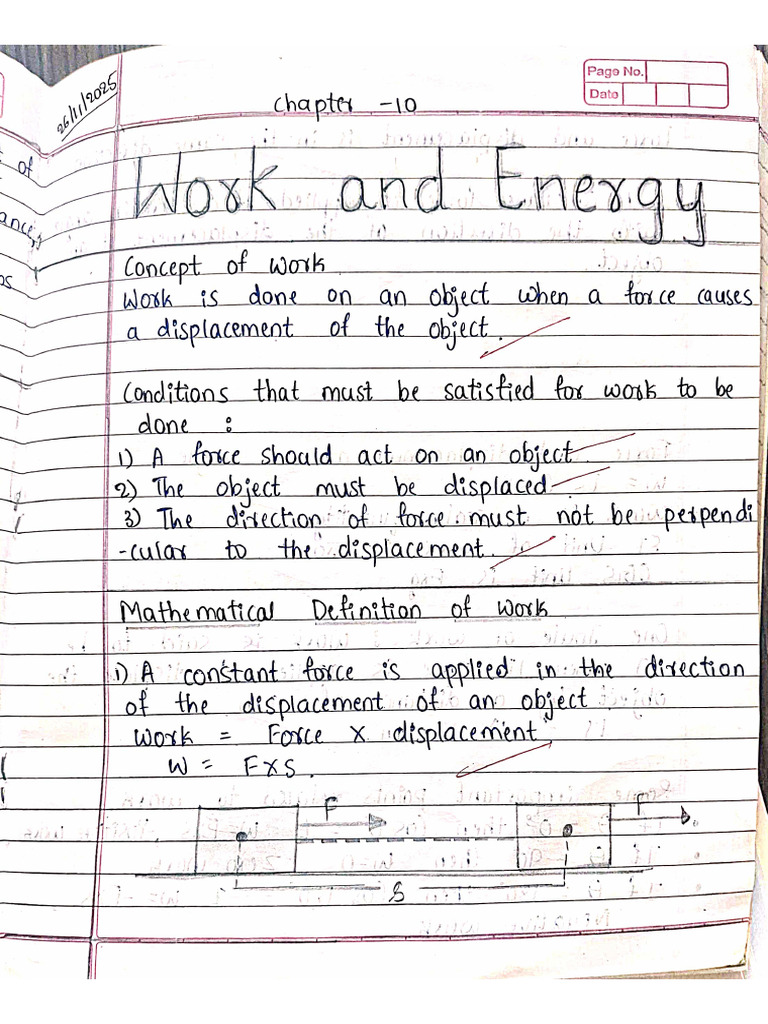 26/11/2025
Page No.
Date
Chapter -10
Work and Energy
Concept of Work
Work is done on an object when a force causes
a displacement of the object.
Conditions that must be satisfied for work to be
done :
1) A force should act on an object.
2) The object must be displaced.
3) The direction of force must not be perpendi
-cular to the displacement.
Mathematical Definition of Work
1) A constant force is applied in the direction
of the displacement of an object
Work = Force x displacement.
W = F x S.
F
F
S